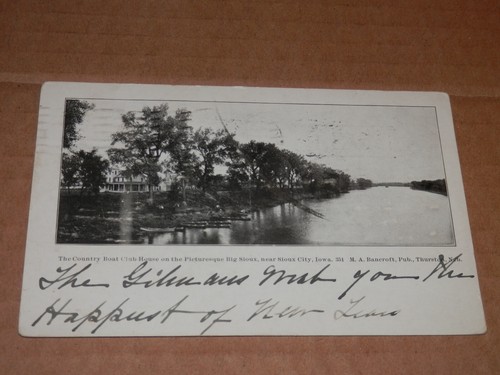 The Country Boat Club House on the Picturesque Big Sioux, near Sioux City, Iowa. 351 H. A. Bancroft, Pub., Thurston, Neb.
The Gilmans wish you the
Happyest of New Years